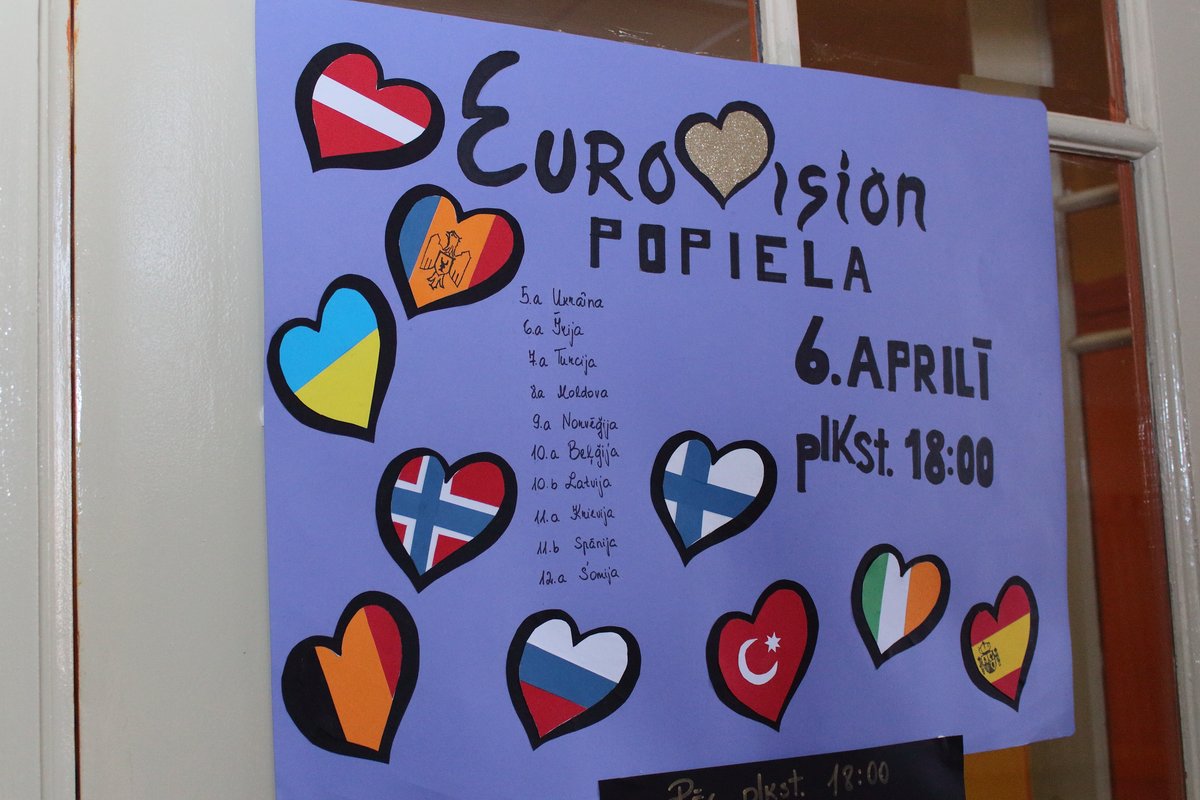 Eurovision
POPIELA
6. APRILĪ
plkst. 18:00
5.a Ukraina
6.a Īrija
7.a Turcija
8.a Moldova
9.a Norvēģija
10.a Beļģija
10.b Latvija
11.a Krievija
11.b Spānija
12.a Somija
Pēc plkst. 18:00